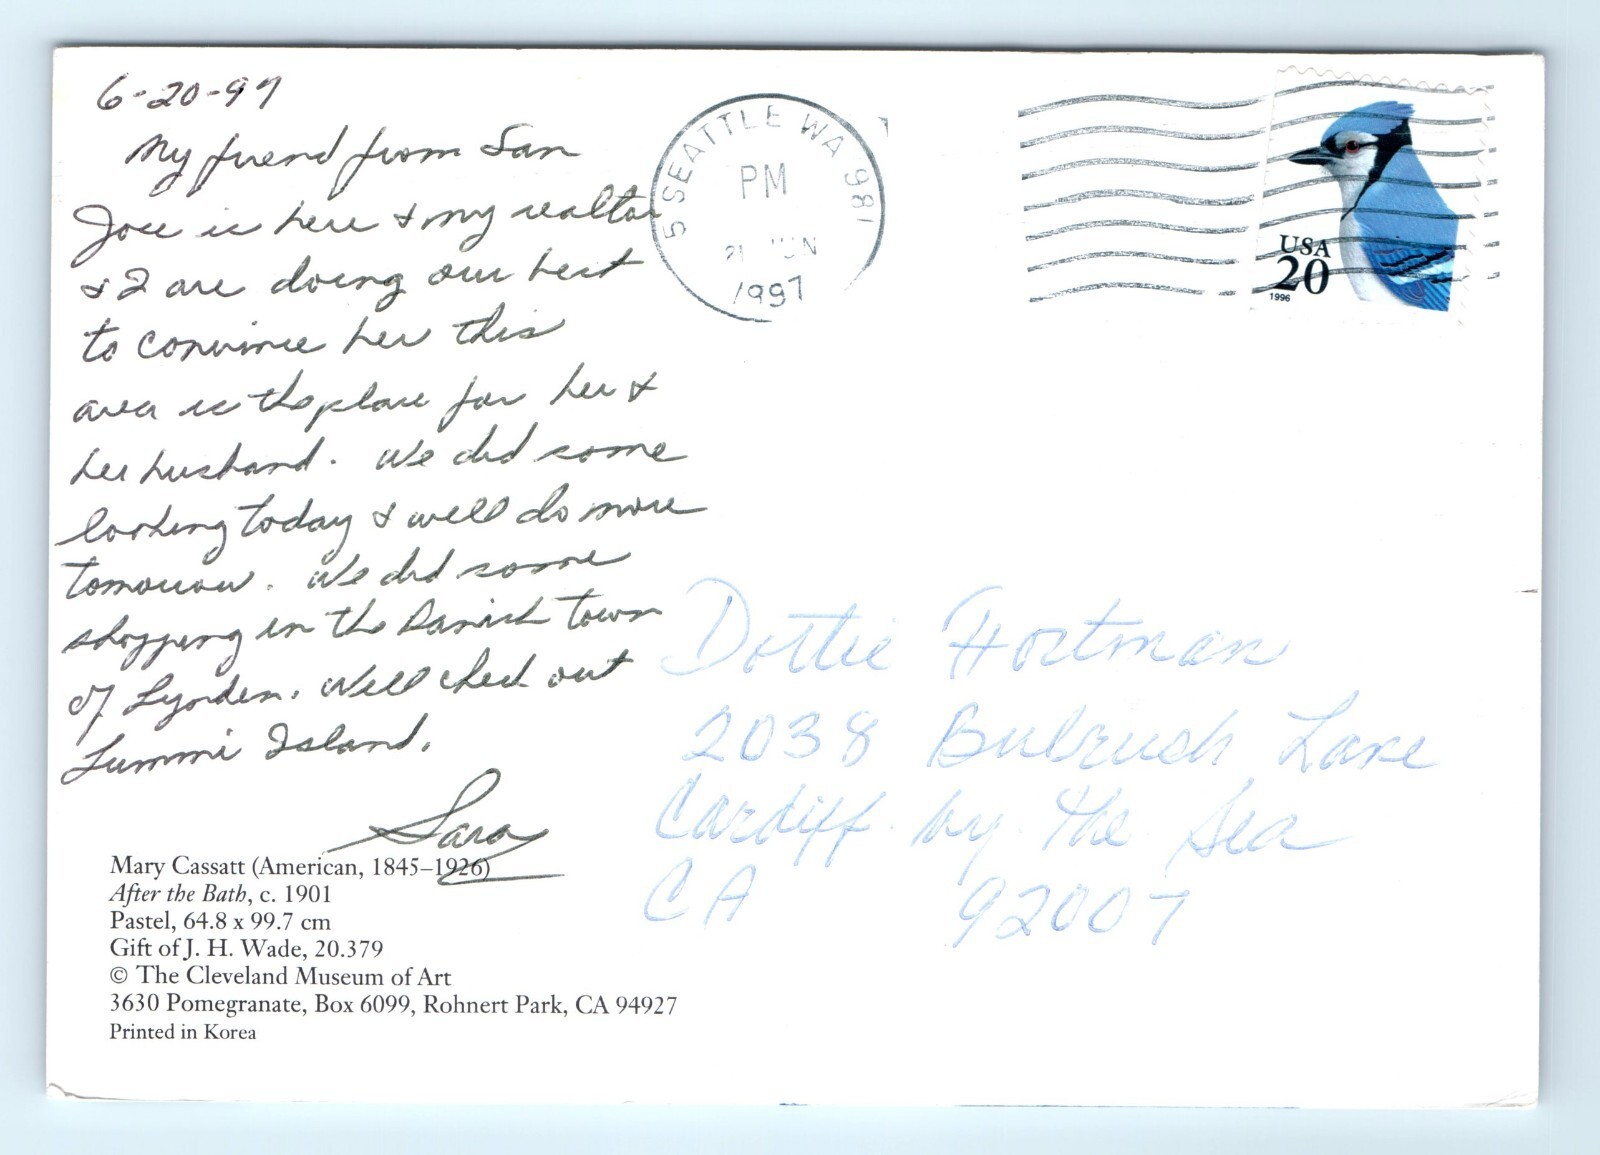 6-20-97
My friend from San
Jose is here & my realtor
& I are doing our best
to convince her this
area is the place for her &
her husband. We did some
looking today & will do more
tomorrow. We did some
shopping in the Danish town
of Lynden. Will check out
Lummi Island.
Sara
Mary Cassatt (American, 1845–1926)
After the Bath, c. 1901
Pastel, 64.8 x 99.7 cm
Gift of J. H. Wade, 20.379
© The Cleveland Museum of Art
3630 Pomegranate, Box 6099, Rohnert Park, CA 94927
Printed in Korea
5 SEATTLE WA 981
PM
21 JUN
1997
USA
20
1996
Dottie Hortman
2038 Bulrush Lane
Cardiff by the Sea
CA 92007